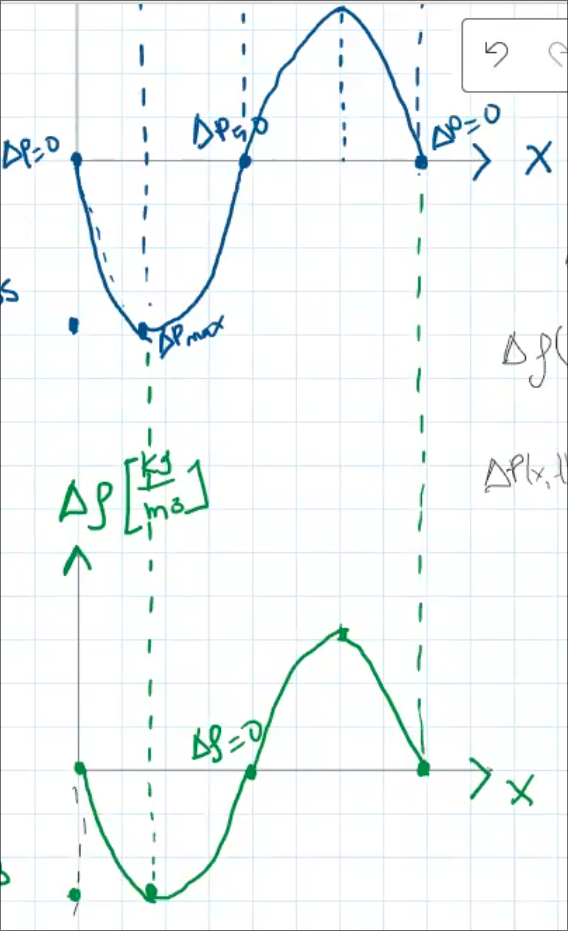 ΔP=0
ΔP=0
ΔP=0
x
s
ΔPmax
Δρ(
ΔP(x,t)
Δρ [kg/m3]
Δρ=0
x